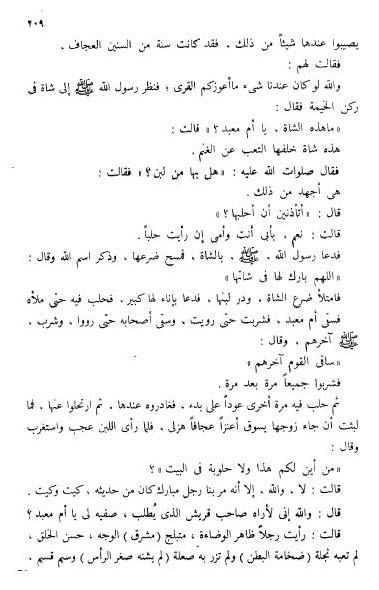 ٢٠٩
يصيبوا عندها شيئاً من ذلك . فقد كانت سنة من السنين العجاف .
فقالت لهم :
والله لو كان عندنا شىء ماأعوزكم القرى ؛ فنظر رسول الله ﷺ إلى شاة فى
ركن الخيمة فقال :
« ماهذه الشاة . يا أم معبد؟ » قالت :
هذه شاة خلفها التعب عن الغنم .
فقال صلوات الله عليه : « هل بها من لبن؟ » فقالت :
هى أجهد من ذلك .
قال : « أتأذنين أن أحلبها ؟ »
قالت : نعم . بأبى أنت وأمى إن رأيت حلباً .
فدعا رسول الله . ﷺ . بالشاة ، فمسح ضرعها ، وذكر اسم الله وقال :
« اللهم بارك لها فى شاتها »
فامتلأ ضرع الشاة . ودر لبنها ، فدعا بإناء لها كبير . فحلب فيه حتى ملأه
فسقى أم معبد ، فشربت حتى رويت ، وسقى أصحابه حتى رووا ، وشرب .
ﷺ آخرهم . وقال :
« ساقى القوم آخرهم »
فشربوا جميعاً مرة بعد مرة .
ثم حلب فيه مرة أخرى عوداً على بدء . فغادروه عندها . ثم ارتحلوا عنها . فما
لبثت أن جاء زوجها يسوق أعنزاً عجافاً هزلى . فلما رأى اللبن عجب واستغرب
وقال :
« من أين لكم هذا ولا حلوبة فى البيت » ؟
قالت : لا . والله . إلا أنه مر بنا رجل مبارك كان من حديثه . كيت وكيت .
قال : والله إنى لأراه صاحب قريش الذى يُطلب . صفيه لى يا أم معبد ؟
قالت : رأيت رجلاً ظاهر الوضاءة ، متبلج ( مشرق ) الوجه ، حسن الخلق .
لم تعبه نجلة ( ضخامة البطن ) ولم تزر به صعلة ( لم يشنه صغر الرأس ) وسيم قسيم .